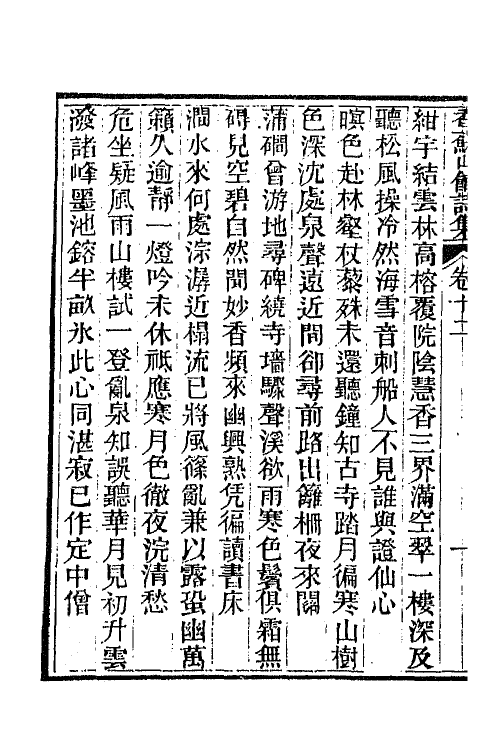 香蘇山館詩集 卷十二 一
紺宇結雲林高榕覆院陰慧香三界滿空翠一樓深及
聽松風操冷然海雪音刺船人不見誰與證仙心
暝色赴林壑杖藜殊未還聽鐘知古寺踏月徧寒山樹
色深沈處泉聲遠近間卻尋前路出籬柵夜來關
蒲磵曾游地尋碑繞寺墻驟聲溪欲雨寒色鬢俱霜無
碍見空碧自然聞妙香頻來幽興熟凭徧讀書床
澗水來何處淙潺近榻流已將風篠亂兼以露蛩幽萬
籟久逾靜一燈吟未休祗應寒月色徹夜浣清愁
危坐疑風雨山樓試一登亂泉知誤聽華月見初升雲
潑諸峰墨池鎔半畝氷此心同湛寂已作定中僧